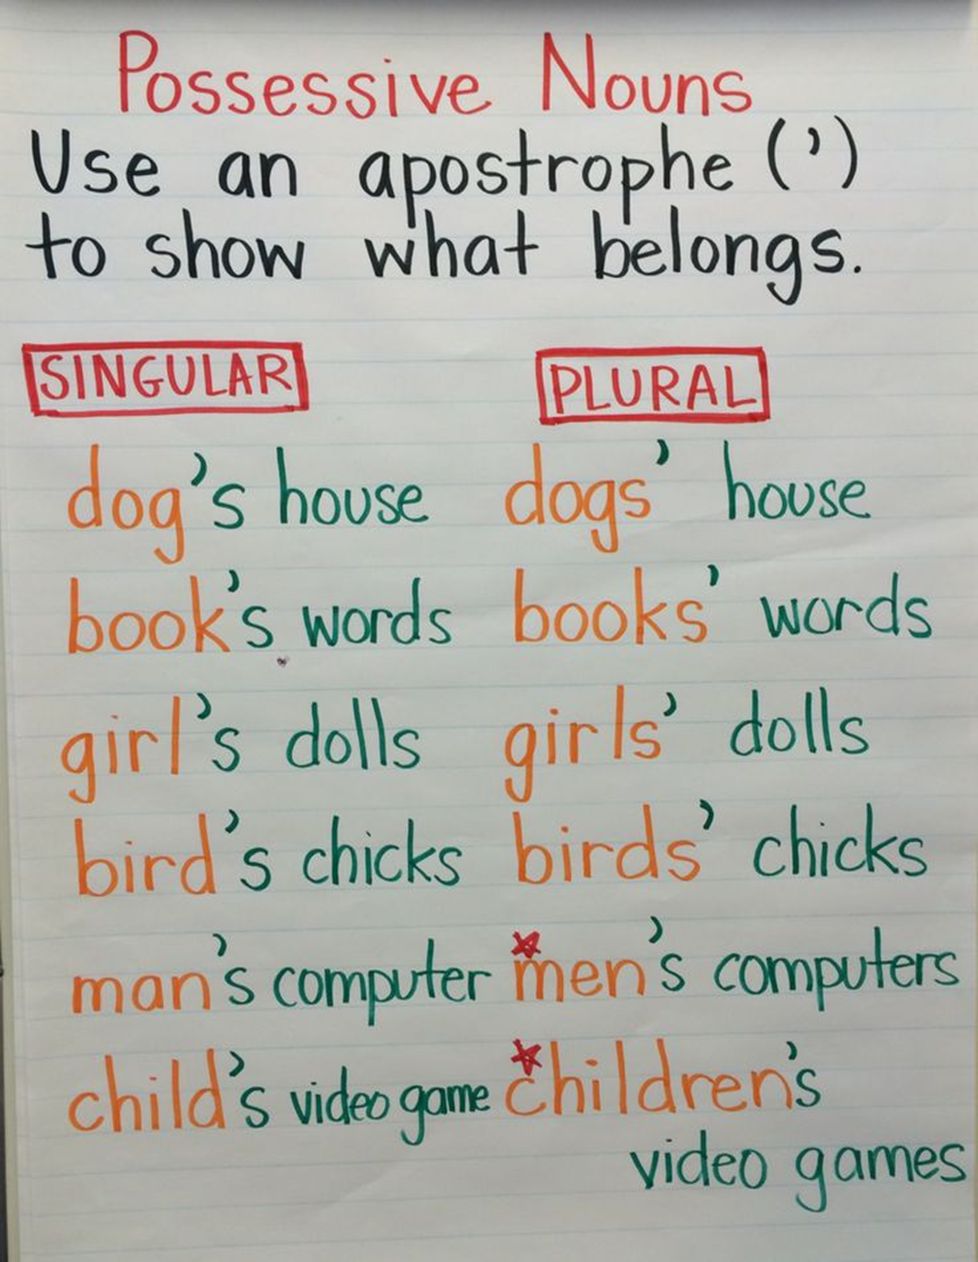 Possessive Nouns
Use an apostrophe (’)
to show what belongs.
SINGULAR PLURAL
dog’s house dogs’ house
book’s words books’ words
girl’s dolls girls’ dolls
bird’s chicks birds’ chicks
man’s computer men’s computers
child’s video game children’s
video games